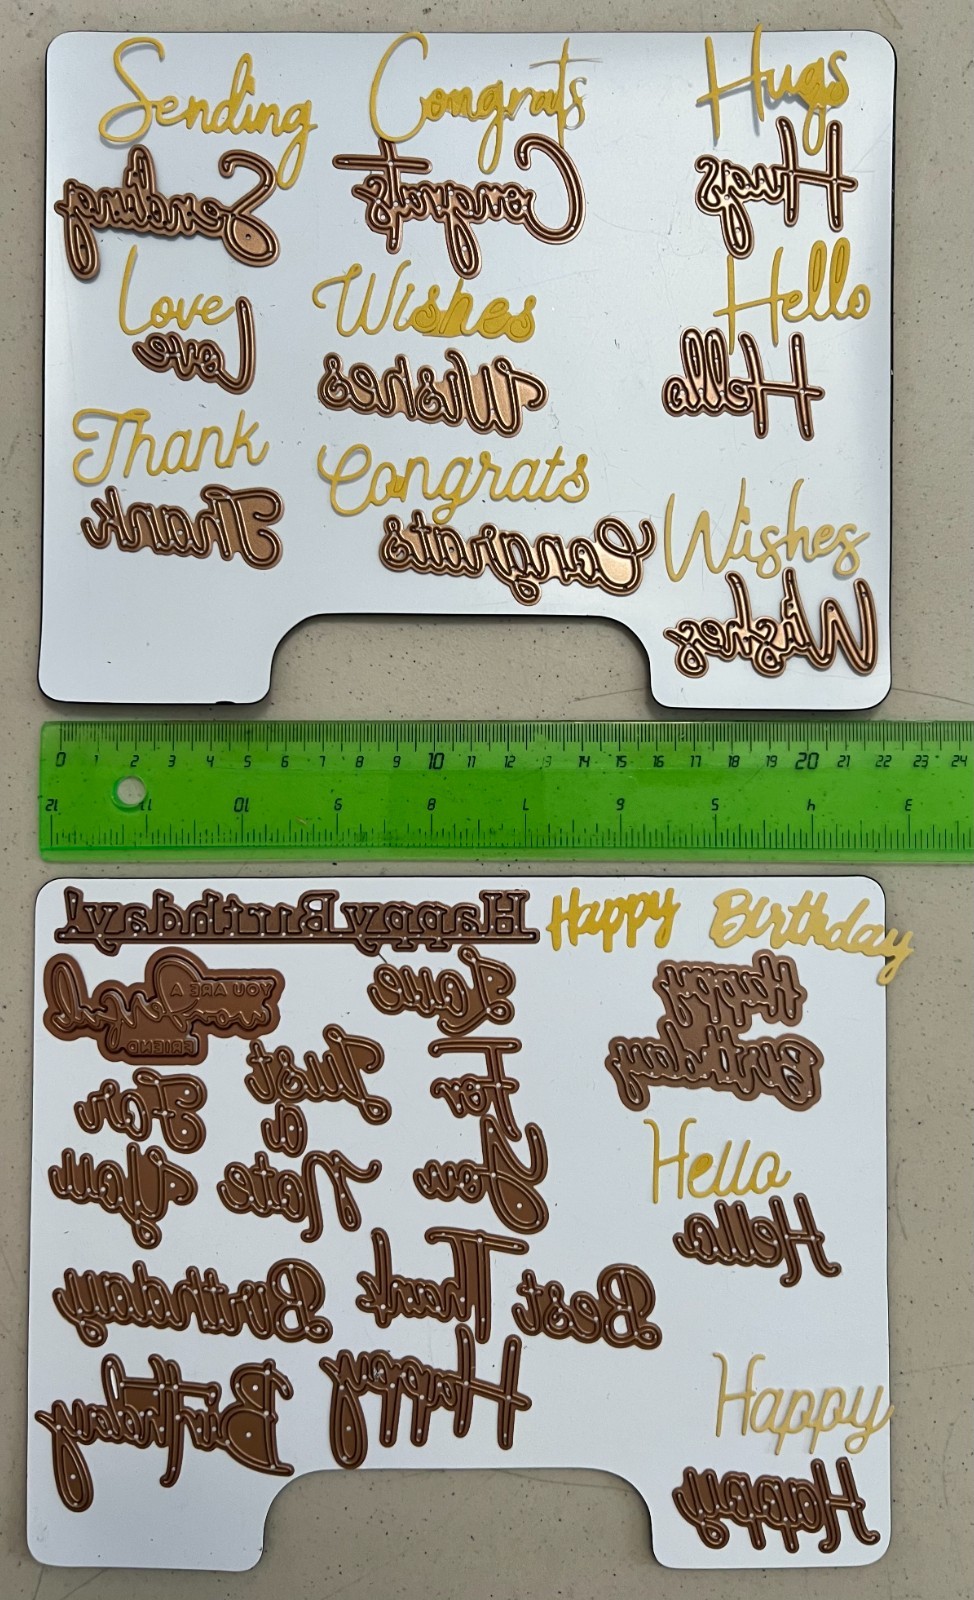 Sending Congrats Hugs
Sending Congrats Hugs
Love Wishes Hello
Love Wishes Hello
Thank Congrats Wishes
Thank Congrats Wishes
0 1 2 3 4 5 6 7 8 9 10 11 12 13 14 15 16 17 18 19 20 21 22 23 24
12 11 10 9 8 7 6 5 4 3
Happy Birthday! Happy Birthday
YOU ARE A
wonderful
FRIEND
Love
Happy
Birthday
Just
a
Note
For
You
For
You
Hello
Hello
Birthday Thank Best
Birthday Happy Happy
Happy